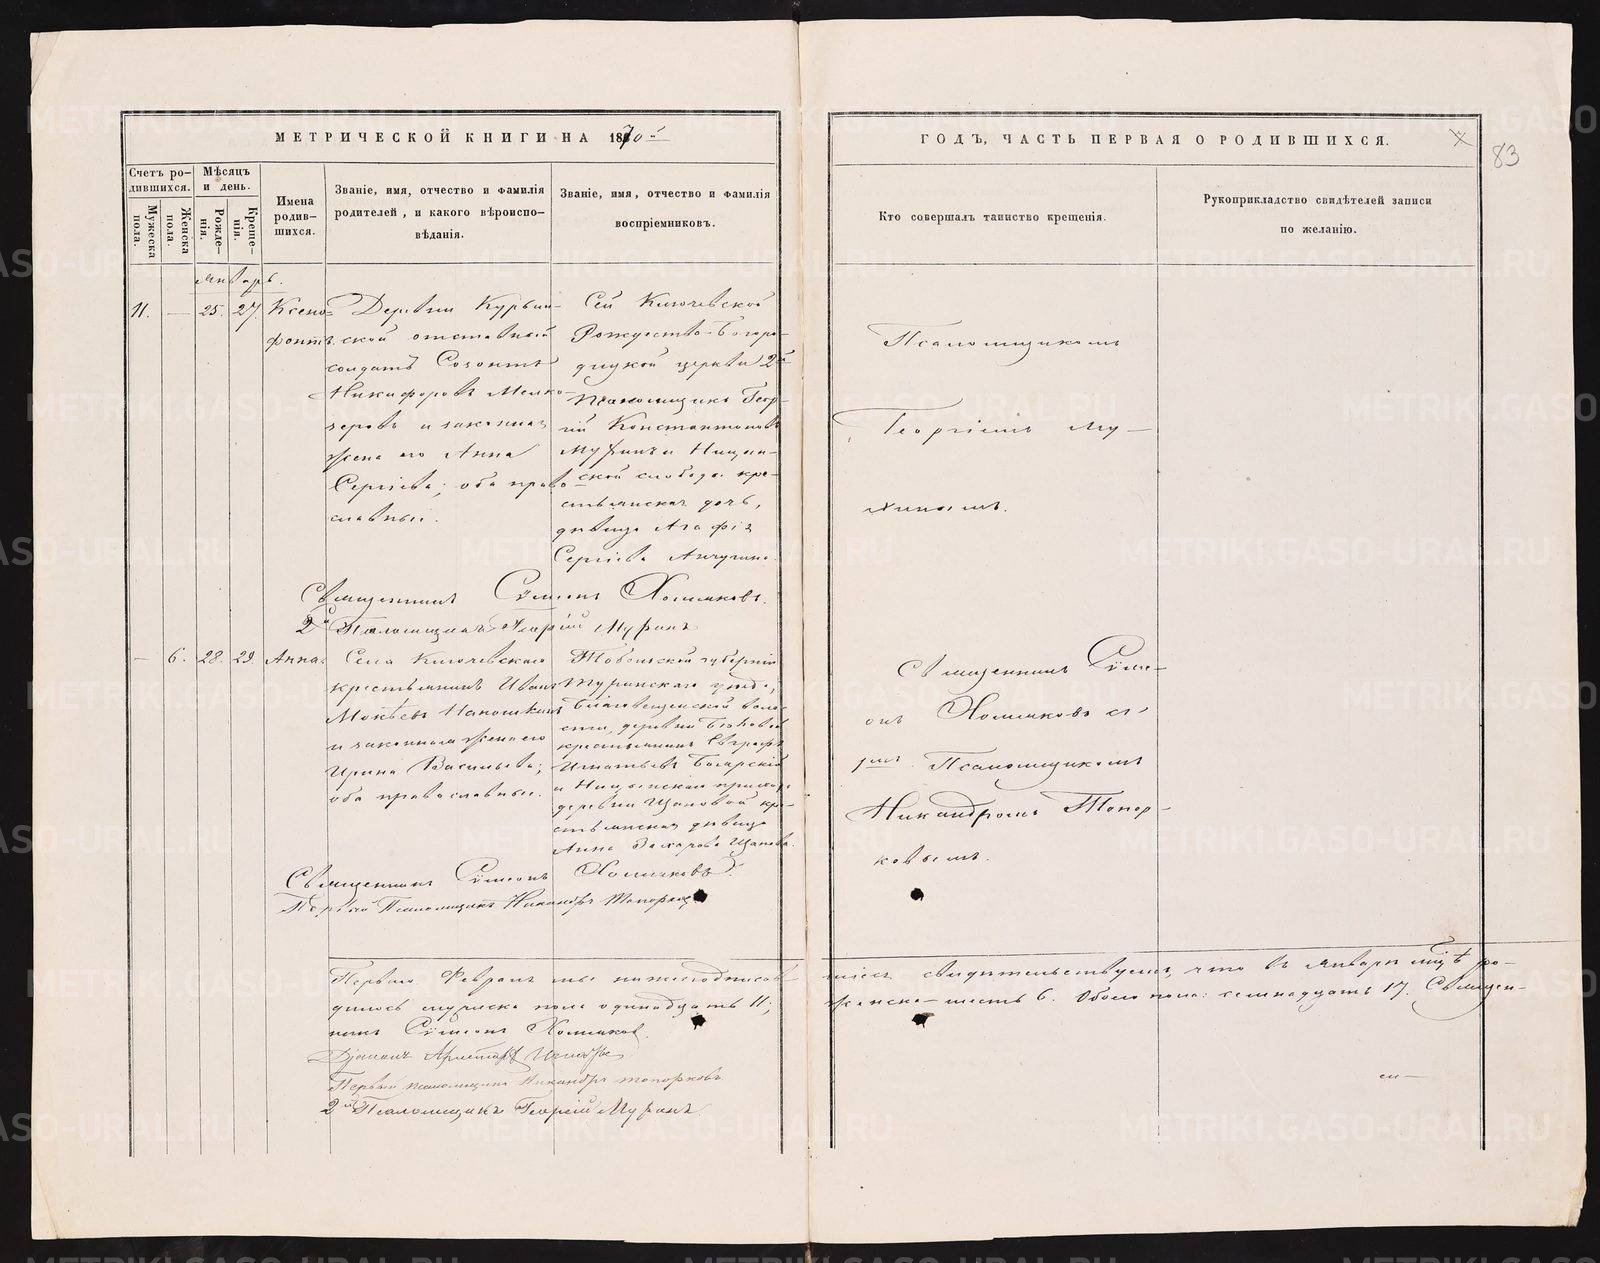 МЕТРИЧЕСКОЙ КНИГИ НА 1870й
ГОДЪ, ЧАСТЬ ПЕРВАЯ О РОДИВШИХСЯ.
83
Счетъ ро-
дившихся.
Мужеска пола.
Женска пола.
Мѣсяцъ
и день.
Рожде-
нія.
Креще-
нія.
Имена
родив-
шихся.
Званіе, имя, отчество и фамилія
родителей, и какого вѣроиспо-
вѣданія.
Званіе, имя, отчество и фамилія
воспріемниковъ.
Кто совершалъ таинство крещенія.
Рукоприкладство свидѣтелей записи
по желанію.
Январь.
11. — 25. 27. Ксено-
фонтъ.
Деревни Курьин-
ской отставный
солдатъ Созонтъ
Никифоровъ Мелко-
зеровъ и законная
жена его Анна
Сергіева; оба право-
славные.
Сей Ключевской
Рождество-Богоро-
дицкой церкви 2й
Псаломщикъ Геор-
гій Константиновъ
Мухинъ и Ницин-
ской слободы кре-
стьянская дочь,
дѣвица Агафія
Сергіева Анчугина.
Псаломщикомъ
Георгіемъ Му-
хинымъ.
Священникъ Сѵмеонъ Холмяковъ.
2й Псаломщикъ Георгій Мухинъ
— 6. 28. 29. Анна.
Села Ключевскаго
крестьянинъ Иванъ
Мокѣевъ
и законная жена его
Ирина Васильева;
оба православные.
Тобольской губерніи
Туринскаго уѣзда,
Благовещенской воло-
сти, деревни
крестьянинъ Евграфъ
Игнатьевъ Боярскій
и Ницынскаго прихода
деревни Щаповой кре-
стьянская дѣвица
Анна Захарова Щапова.
Священникъ Сѵме-
онъ Холмяковъ съ
1мъ Псаломщикомъ
Никандромъ Топор-
ковымъ.
Священникъ Сѵмеонъ Холмяковъ.
Первый Псаломщикъ Никандръ Топорковъ
Перваго Февраля мы нижеподписав-
шіеся свидѣтельствуемъ, что въ Январѣ м-цѣ ро-
дилось мужеска пола одинадцать 11;
женска—шесть 6. Обоего пола: семнадцать 17. Священ-
никъ Сѵмеонъ Холмяковъ.
Діаконъ
Первый псаломщикъ Никандръ Топорковъ
2й Псаломщикъ Георгій Мухинъ
METRIKI.GASO-URAL.RU